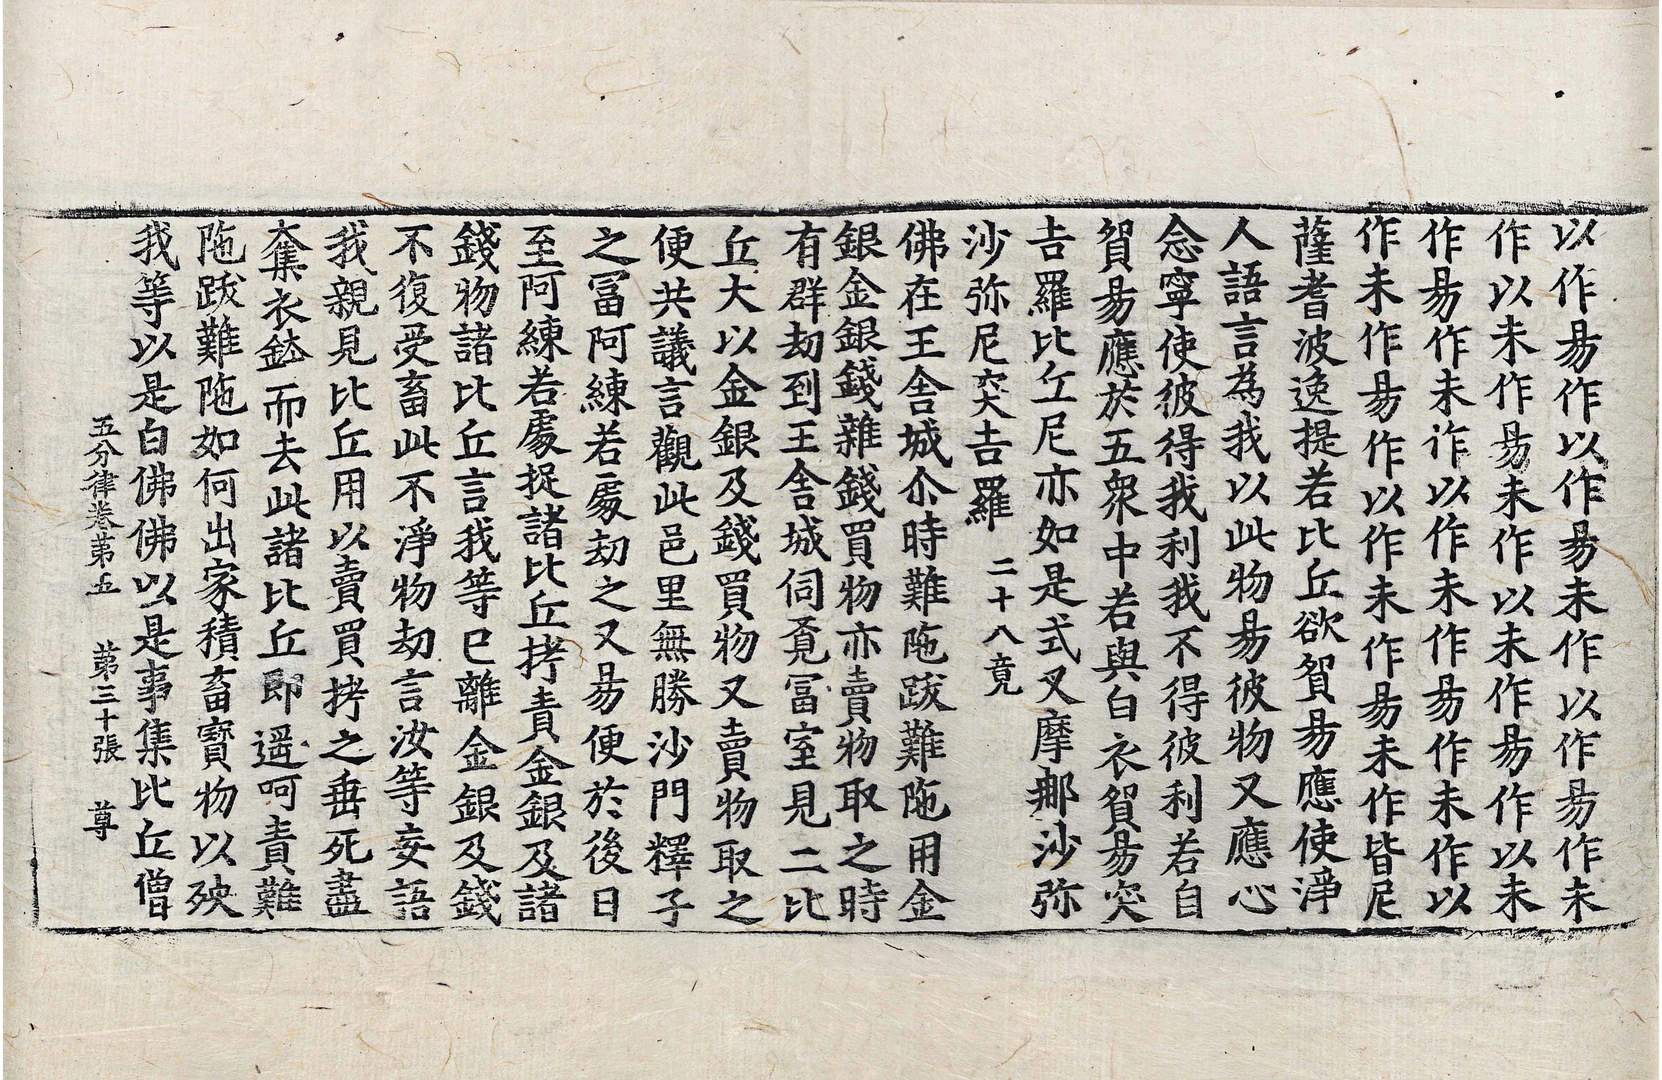 以作昜作以作昜未作以作昜作未
作以未作昜未作以未作昜作以未
作昜作未作以作未作昜作未作以
作未作昜作以作未作昜未作皆尼
薩耆波逸提若比丘欲貿昜應使淨
人語言為我以此物昜彼物又應心
念寧使彼得我利我不得彼利若自
貿昜應於五衆中若與白衣貿昜突
吉羅比丘尼亦如是式叉摩那沙弥
沙弥尼突吉羅 二十八竟
佛在王舎城尒時難陁跋難陁用金
銀金銀錢雜錢買物亦賣物取之時
有群劫到王舎城伺覔冨室見二比
丘大以金銀及錢買物又賣物取之
便共議言觀此邑里無勝沙門釋子
之冨阿練若䖏劫之又昜便於後日
至阿練若䖏捉諸比丘拷責金銀及諸
錢物諸比丘言我等已離金銀及錢
不復受畜此不淨物劫言汝等妄語
我親見比丘用以賣買拷之垂死盡
奪衣鉢而去此諸比丘即遥呵責難
陁跋難陁如何出家積畜寶物以殃
我等以是白佛佛以是事集比丘僧
五分律卷第五 第三十張 尊